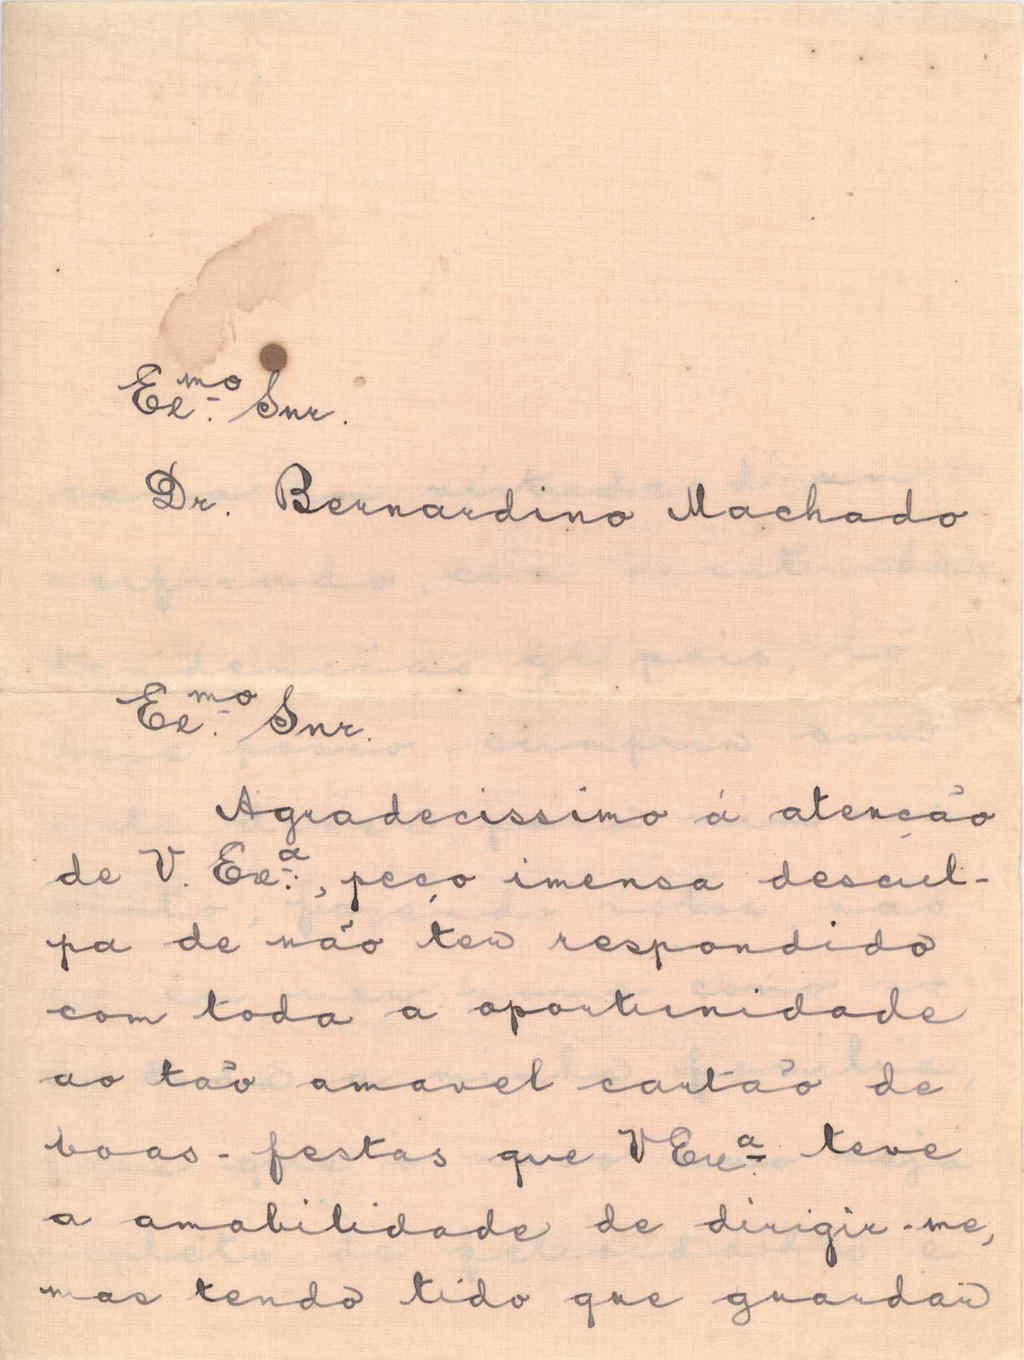 Exmo. Snr.
Dr. Bernardino Machado
Exmo. Snr.
Agradecissimo á atenção
de V. Exa., peço imensa descul-
pa de não ter respondido
com toda a oportunidade
ao tão amavel cartão de
boas-festas que V Exa. teve
a amabilidade de dirigir-me,
mas tendo tido que guardar